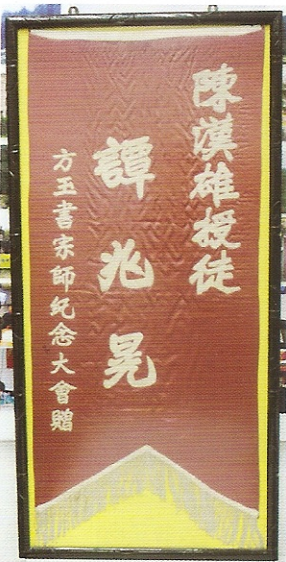 陳漢雄授徒
譚兆晃
方玉書宗師紀念大會贈